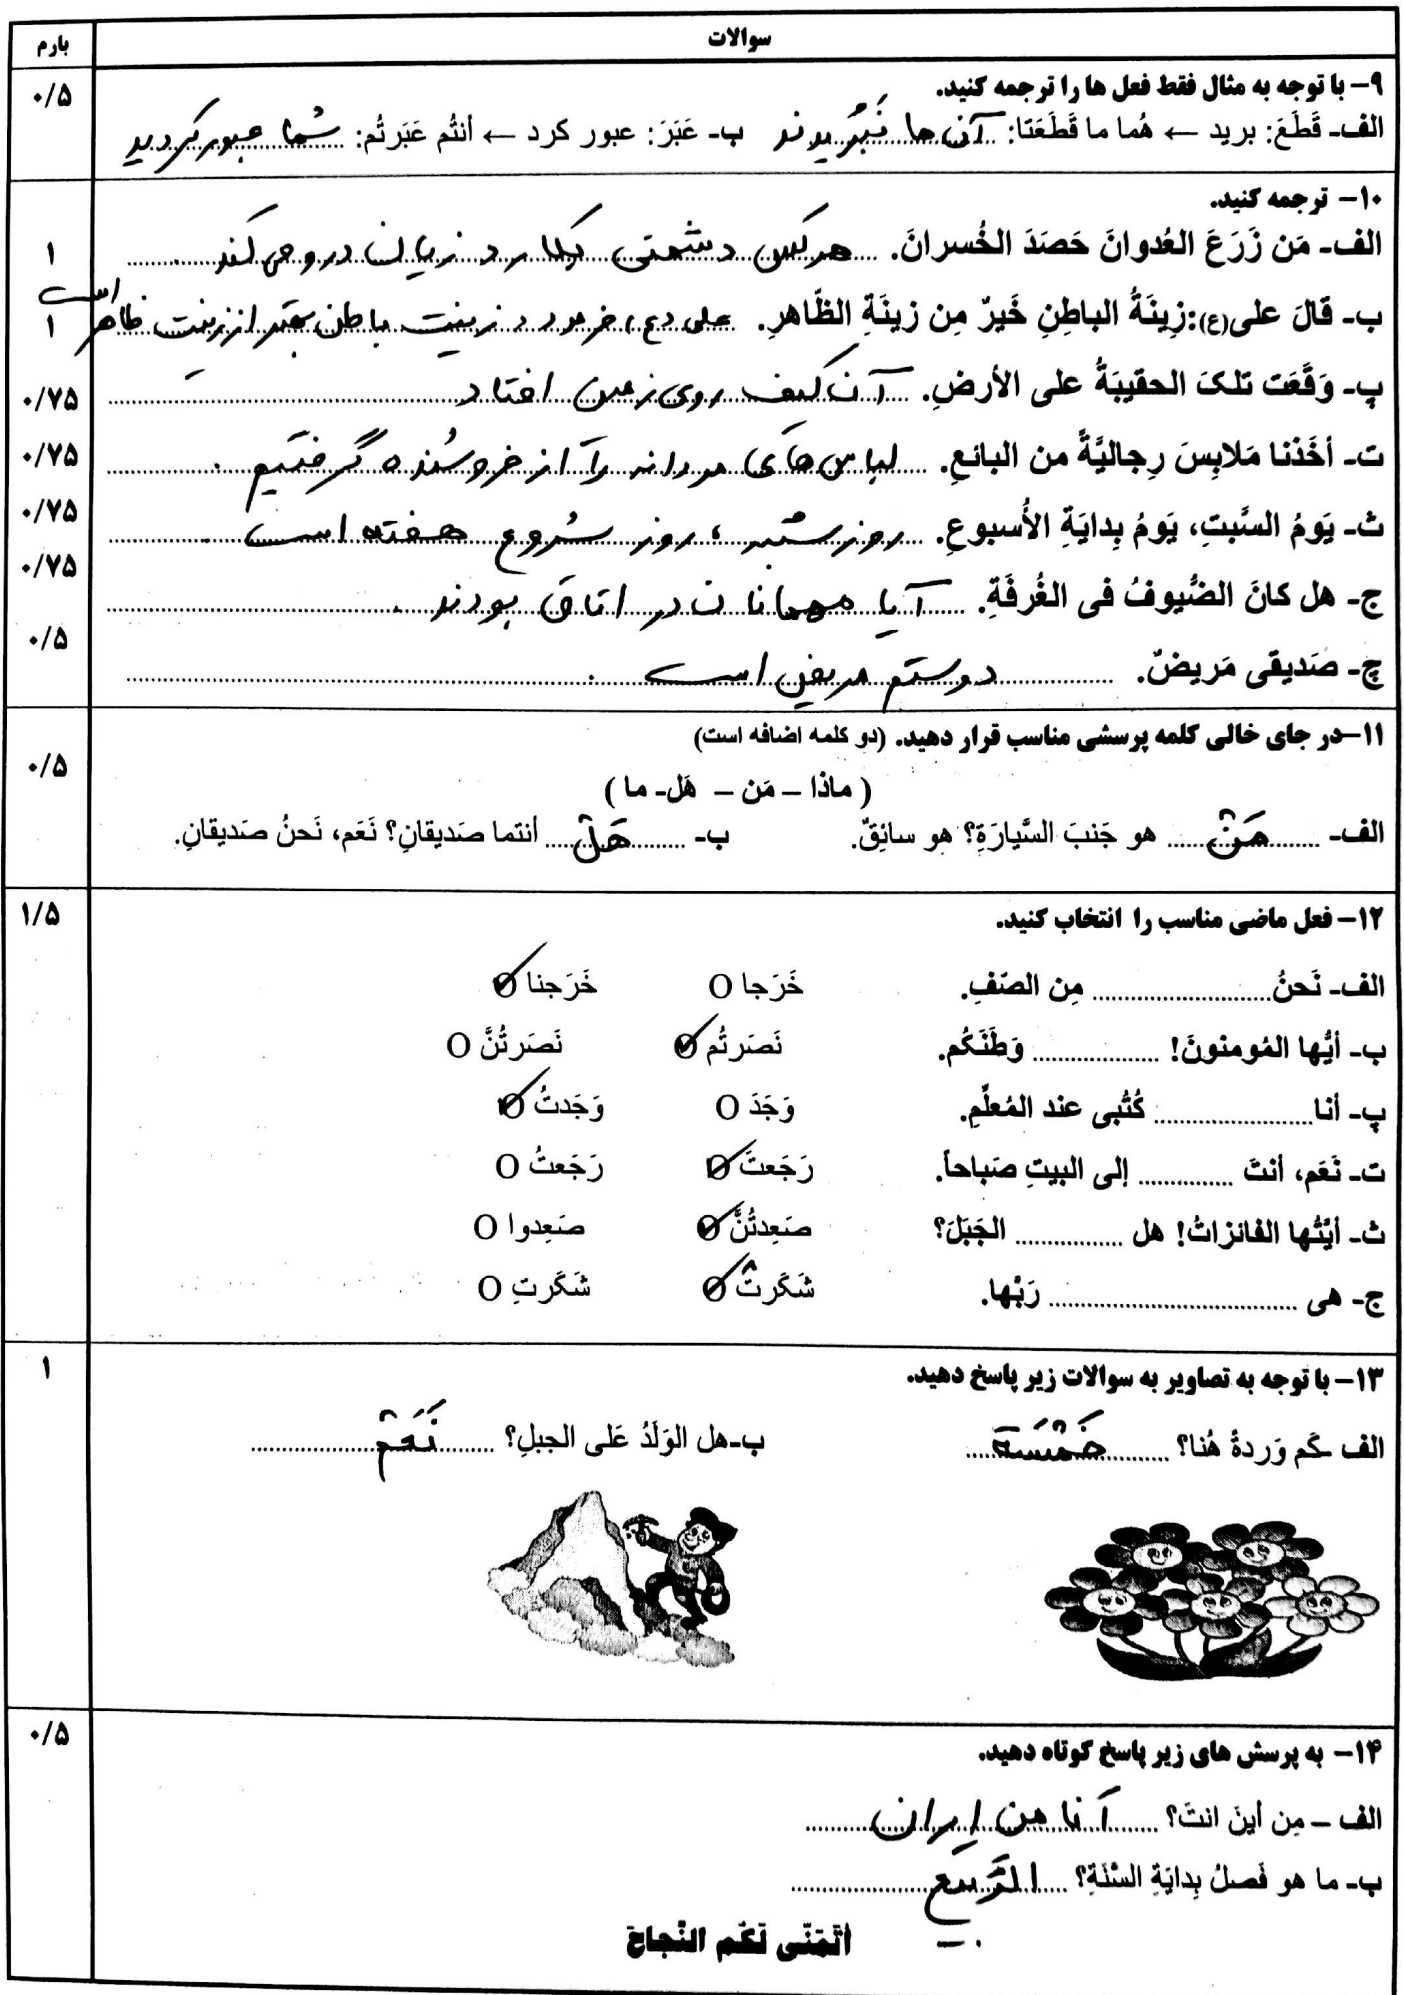 سوالات
بارم
۹– با توجه به مثال فقط فعل ها را ترجمه کنید.
۰/۵
الف- قَطَعَ: برید ← هُما ما قَطَعَتا: آن ها نَبُریدند ب- عَبَرَ: عبور کرد ← أنتُم عَبَرتُم: شُما عبور کردید
۱۰– ترجمه کنید.
الف- مَن زَرَعَ العُدوانَ حَصَدَ الخُسرانَ. هرکس دشمنی بکارد زیان درو می کند.
۱
ب- قالَ علی(ع):زِینَةُ الباطِنِ خَیرٌ مِن زینَةِ الظّاهرِ. علی (ع) فرمود زینت باطن بهتر از زینت ظاهر است
۱
پ- وَقَعَت تلکَ الحقیبَةُ علی الأرضِ. آن کیف روی زمین افتاد
۰/۷۵
ت- أخَذْنا مَلابِسَ رِجالیَّةً من البائعِ. لباس های مردانه را از فروشنده گرفتیم.
۰/۷۵
ث- یَومُ السَّبتِ، یَومُ بِدایَةِ الأُسبوعِ. روز شنبه، روز شروع هفته است.
۰/۷۵
ج- هل کانَ الضُّیوفُ فی الغُرفَةِ. آیا مهمانان در اتاق بودند.
۰/۷۵
چ- صَدیقی مَریضٌ. دوستم مریض است.
۰/۵
۱۱–در جای خالی کلمه پرسشی مناسب قرار دهید. (دو کلمه اضافه است)
۰/۵
( ماذا – مَن – هَل- ما )
الف- مَنْ هو جَنبَ السَّیارَةِ؟ هو سائِقٌ. ب- هَلْ أنتما صَدیقانِ؟ نَعَم، نَحنُ صَدیقانِ.
۱۲– فعل ماضی مناسب را انتخاب کنید.
۱/۵
الف- نَحنُ.......... مِن الصّفِ. خَرَجا O خَرَجنا O✓
ب- أیُّها المُومنونَ! .......... وَطَنَکُم. نَصَرتُم O✓ نَصَرتُنَّ O
پ- أنا.......... کُتُبی عند المُعلِّمِ. وَجَدَ O وَجَدتُ O✓
ت- نَعَم، أنتَ .......... إلی البیتِ صَباحاً. رَجَعتَ O✓ رَجَعتُ O
ث- أیَّتُها الفائزاتُ! هل .......... الجَبَلَ؟ صَعِدتُنَّ O✓ صَعِدوا O
ج- هی .......... رَبَّها. شَکَرتْ O✓ شَکَرتِ O
۱۳– با توجه به تصاویر به سوالات زیر پاسخ دهید.
۱
الف -کَم وَردةً هُنا؟ خَمْسَة ب-هل الوَلَدُ عَلی الجبلِ؟ نَعَمْ
۱۴– به پرسش های زیر پاسخ کوتاه دهید.
۰/۵
الف – مِن أینَ انتَ؟ أنا من إیران
ب- ما هو فَصلُ بِدایَةِ السَّنَةِ؟ الرَّبیع
اتَمَنّی لَکُم النَّجاحَ